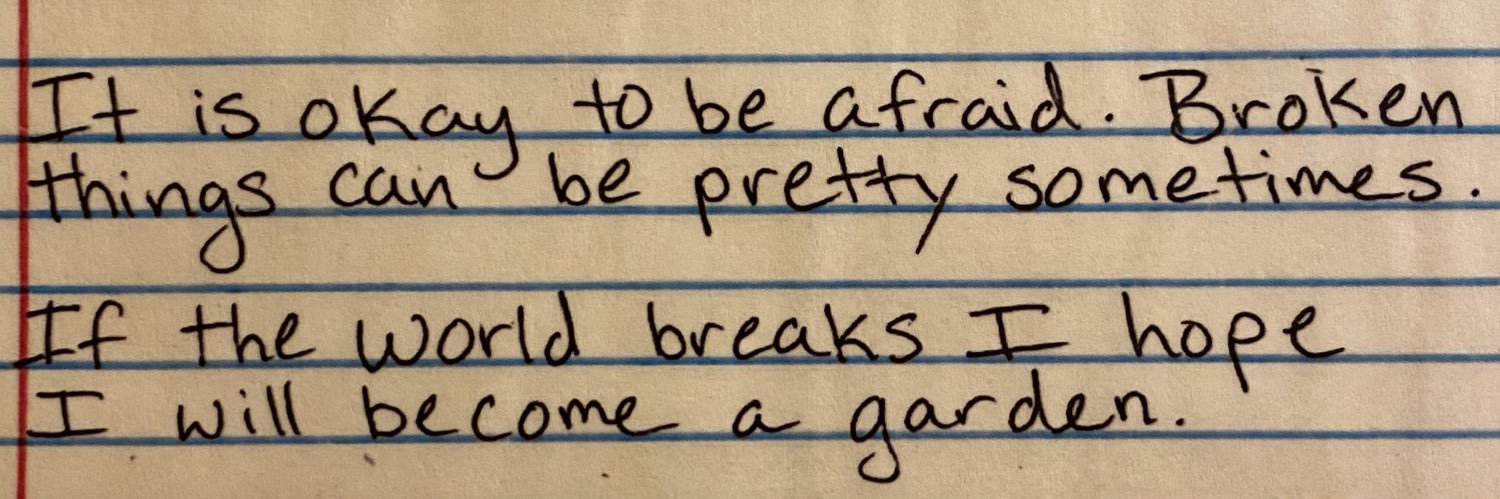 It is okay to be afraid. Broken
things can be pretty sometimes.
If the world breaks I hope
I will become a garden.